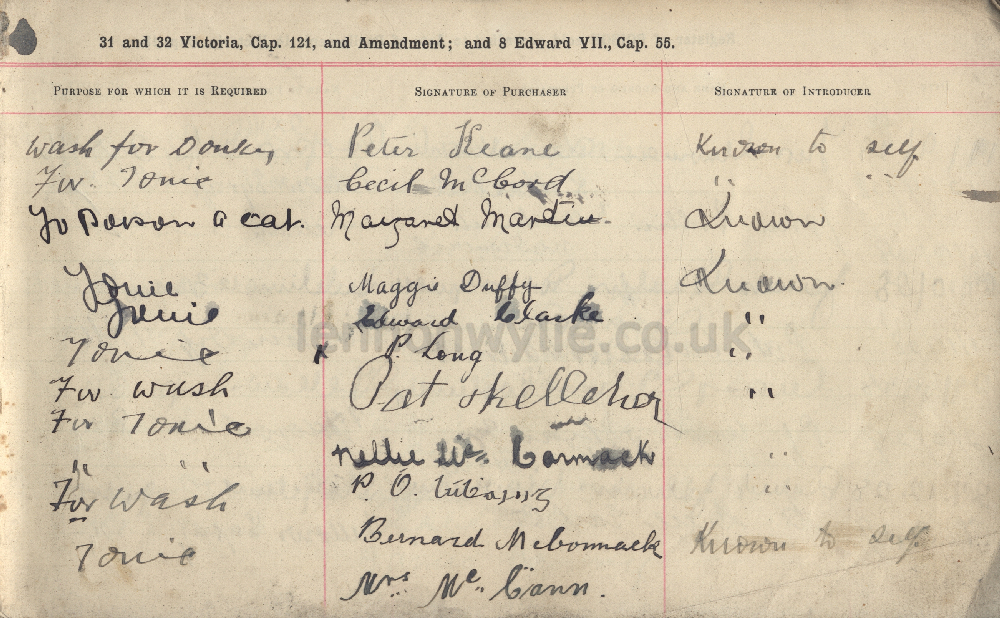 31 and 32 Victoria, Cap. 121, and Amendment; and 8 Edward VII., Cap. 55.
PURPOSE FOR WHICH IT IS REQUIRED SIGNATURE OF PURCHASER SIGNATURE OF INTRODUCER
Wash for Donkey Peter Keane Known to self
For Tonic Cecil McCord " "
To Poison a cat. Margaret Martin Known
Tonic Maggie Duffy Known
Tonic Edward Clarke "
lennonwylie.co.uk
Tonic x P Long "
For wash Pat Skelleher "
For Tonic
" " Nellie Mc Cormack "
For wash P. O. "
Tonic Bernard McCormack Known to self
Mrs Mc Cann.